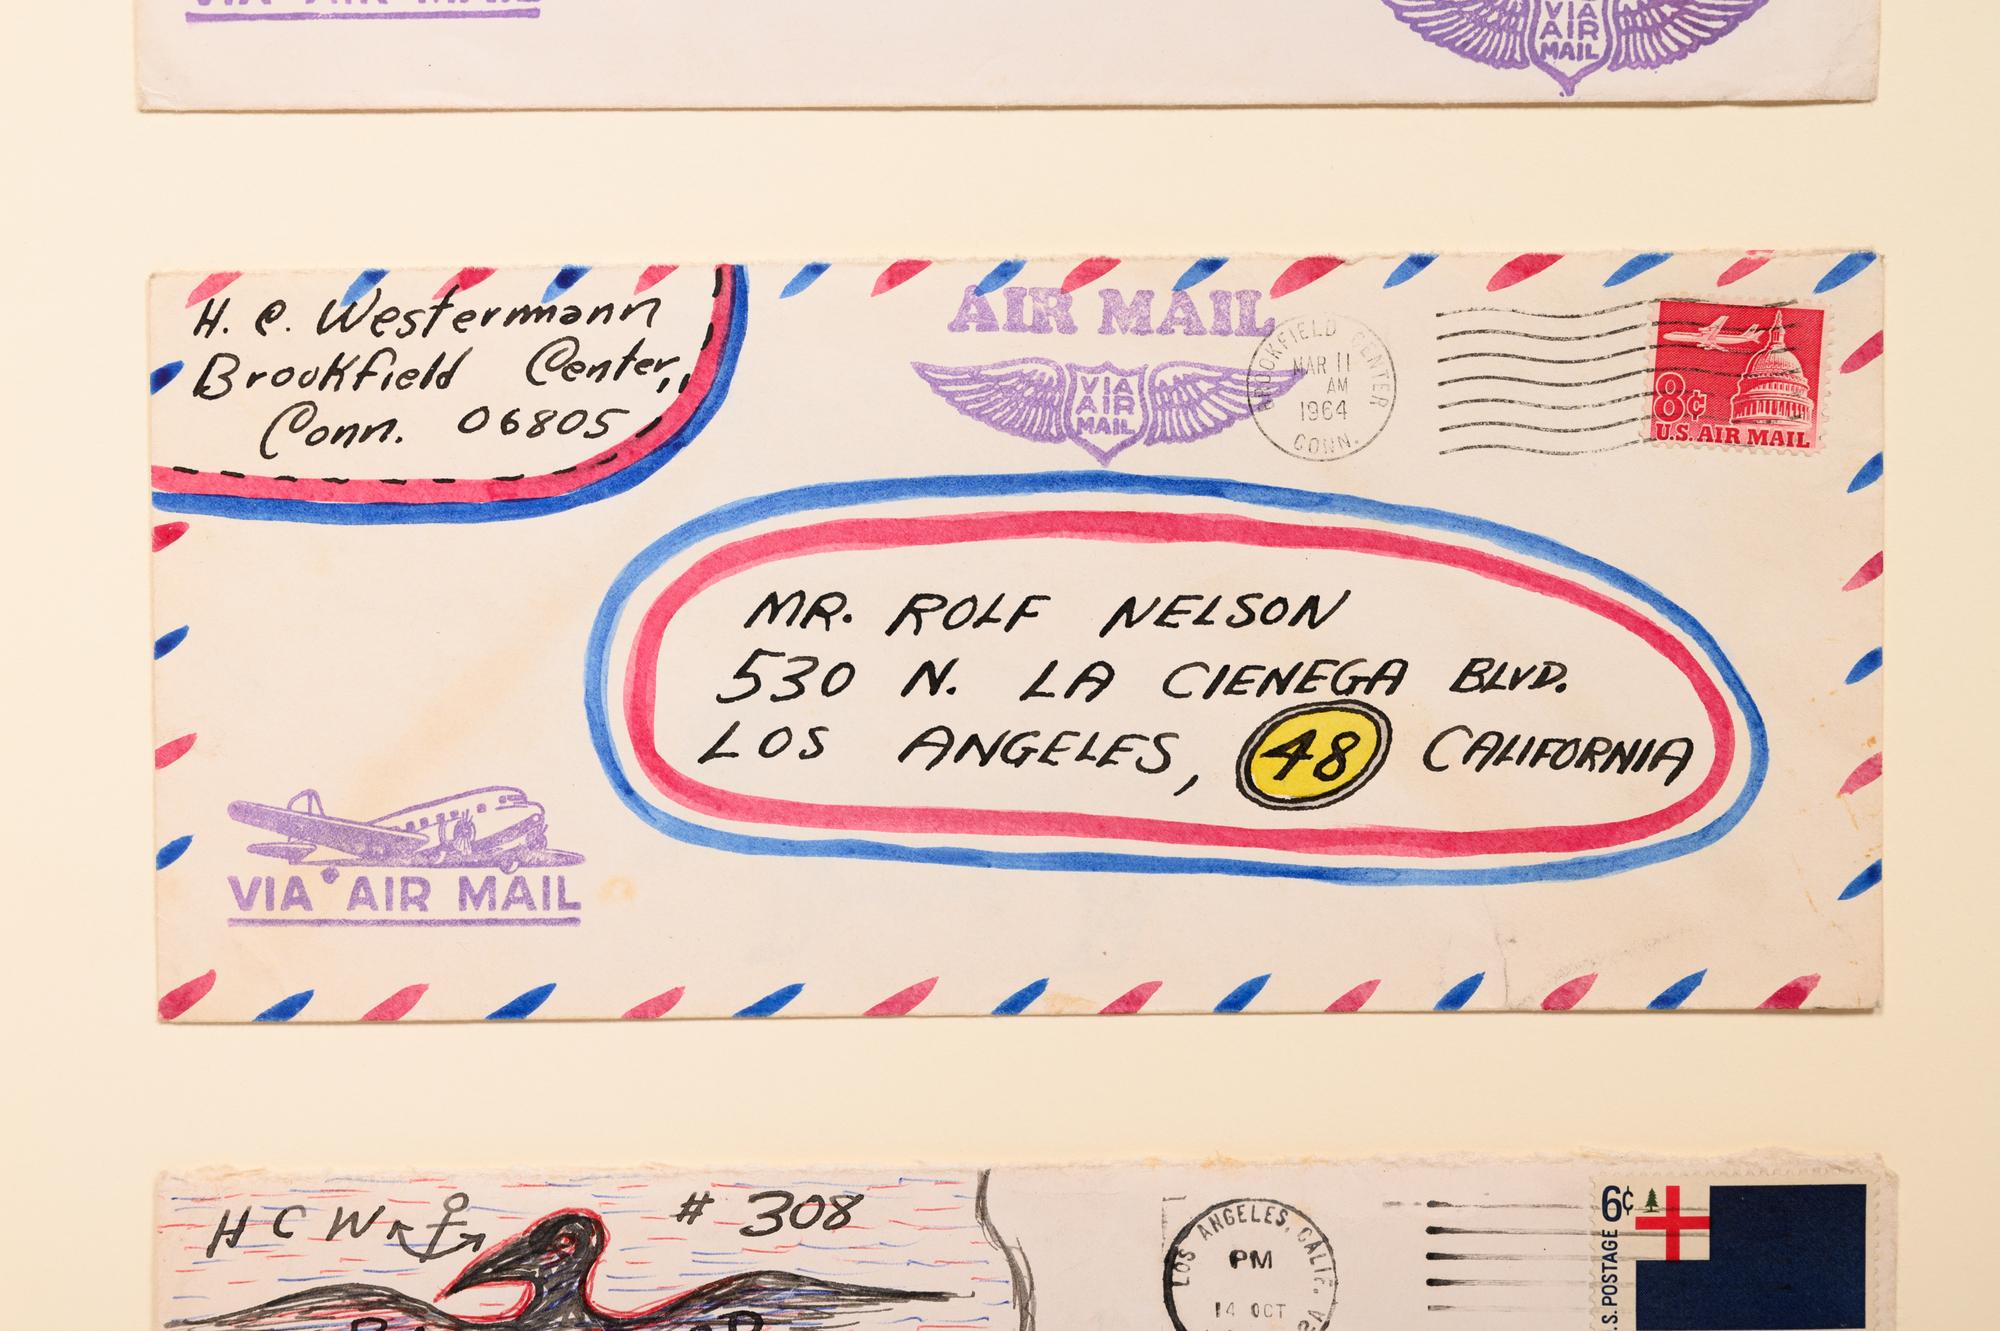 VIA AIR MAIL
VIA
AIR
MAIL
H. C. Westermann
Brookfield Center,
Conn. 06805
AIR MAIL
VIA
AIR
MAIL
BROOKFIELD CENTER
MAR 11
AM
1964
CONN.
8¢
U.S. AIR MAIL
MR. ROLF NELSON
530 N. LA CIENEGA BLVD.
LOS ANGELES, 48 CALIFORNIA
VIA AIR MAIL
H C W
# 308
LOS ANGELES, CALIF.
PM
14 OCT
6¢
U.S. POSTAGE